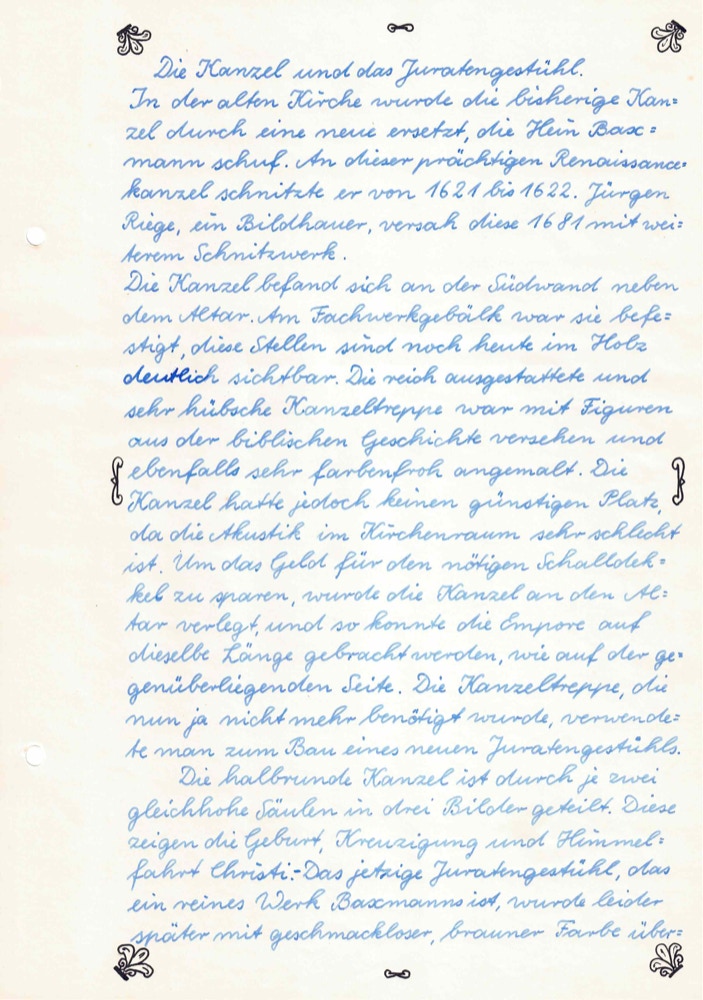 Die Kanzel und das Juratengestühl.
In der alten Kirche wurde die bisherige Kan=
zel durch eine neue ersetzt, die Hein Bax=
mann schuf. An dieser prächtigen Renaissance=
kanzel schnitzte er von 1621 bis 1622. Jürgen
Riege, ein Bildhauer, versah diese 1681 mit wei=
terem Schnitzwerk.
Die Kanzel befand sich an der Südwand neben
dem Altar. Am Fachwerkgebälk war sie befe=
stigt, diese Stellen sind noch heute im Holz
deutlich sichtbar. Die reich ausgestattete und
sehr hübsche Kanzeltreppe war mit Figuren
aus der biblischen Geschichte versehen und
ebenfalls sehr farbenfroh angemalt. Die
Kanzel hatte jedoch keinen günstigen Platz,
da die Akustik im Kirchenraum sehr schlecht
ist. Um das Geld für den nötigen Schalldek=
kel zu sparen, wurde die Kanzel an den Al=
tar verlegt, und so konnte die Empore auf
dieselbe Länge gebracht werden, wie auf der ge=
genüberliegenden Seite. Die Kanzeltreppe, die
nun ja nicht mehr benötigt wurde, verwende=
te man zum Bau eines neuen Juratengestühls.
Die halbrunde Kanzel ist durch je zwei
gleichhohe Säulen in drei Bilder geteilt. Diese
zeigen die Geburt, Kreuzigung und Himmel=
fahrt Christi.-Das jetzige Juratengestühl, das
ein reines Werk Baxmanns ist, wurde leider
später mit geschmackloser, brauner Farbe über=